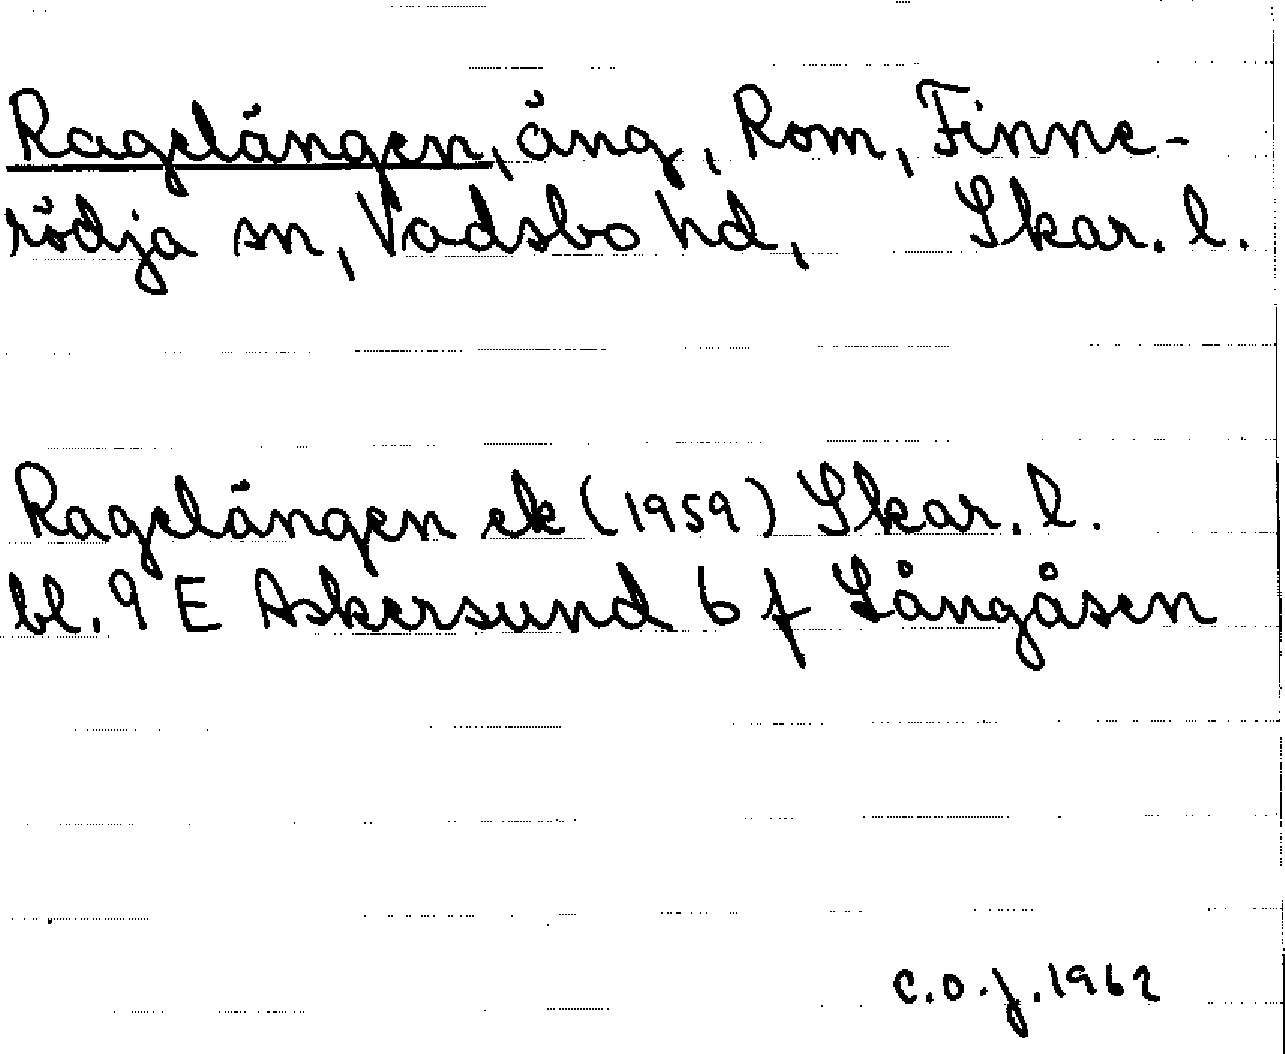 Ragelängen, äng, Rom, Finne-
rödja sn, Vadsbo hd, Skar. l.
Ragelängen ek (1959) Skar. l.
bl. 9 E Askersund 6 f Långåsen
C.O.J. 1962